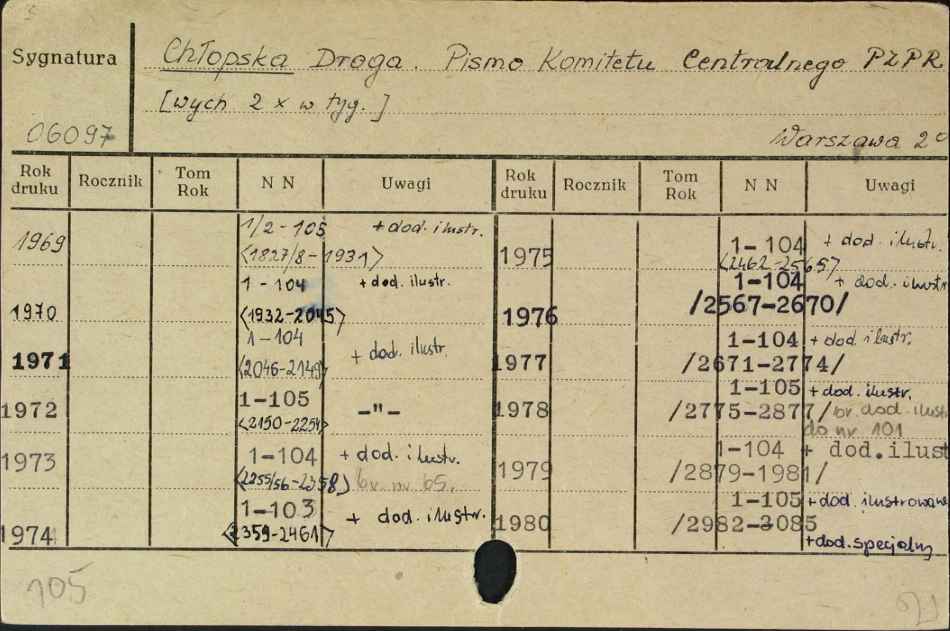 Sygnatura
Chłopska Droga. Pismo Komitetu Centralnego PZPR
[wych 2 x w tyg.]
06097
Warszawa 2°
Rok druku Rocznik Tom Rok N N Uwagi Rok druku Rocznik Tom Rok N N Uwagi
1969 1/2-105 + dod. ilustr.
<1827/8-1931>
1970 1-104 + dod. ilustr.
<1932-2045>
1971 1-104 + dod. ilustr.
<2046-2149>
1972 1-105 -"-
<2150-2254>
1973 1-104 + dod. ilustr.
<2255/56-2358> br. nr 65.
1974 1-103 + dod. ilustr.
<2359-2461>
1975 1-104 + dod. ilustr.
<2462-2565>
1976 1-104 + dod. ilustr
/2567-2670/
1977 1-104 + dod. ilustr.
/2671-2774/
1978 1-105 + dod. ilustr.
/2775-2877/ br. dod. ilustr
do nr 101
1979 1-104 + dod. ilust
/2879-1981/
1980 1-105 + dod. ilustrowane
/2982-3085
+ dod. specjalny
105